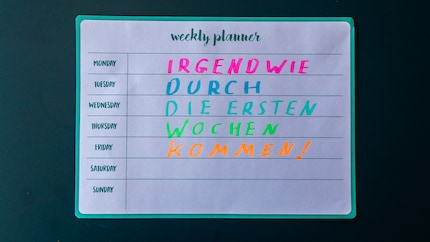 weekly planner
MONDAY IRGENDWIE
TUESDAY DURCH
WEDNESDAY DIE ERSTEN
THURSDAY WOCHEN
FRIDAY KOMMEN!
SATURDAY
SUNDAY